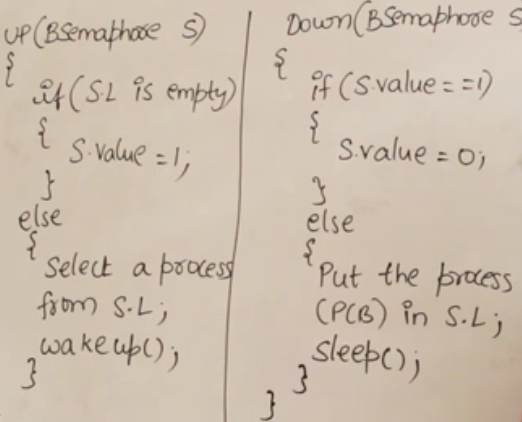 UP(BSemaphore S)
{
if(S.L is empty)
{
S.value = 1;
}
else
{
Select a process
from S.L;
wakeup();
}
Down(BSemaphore S
{
if(S.value = =1)
{
S.value = 0;
}
else
{
Put the process
(PCB) in S.L;
Sleep();
}
}